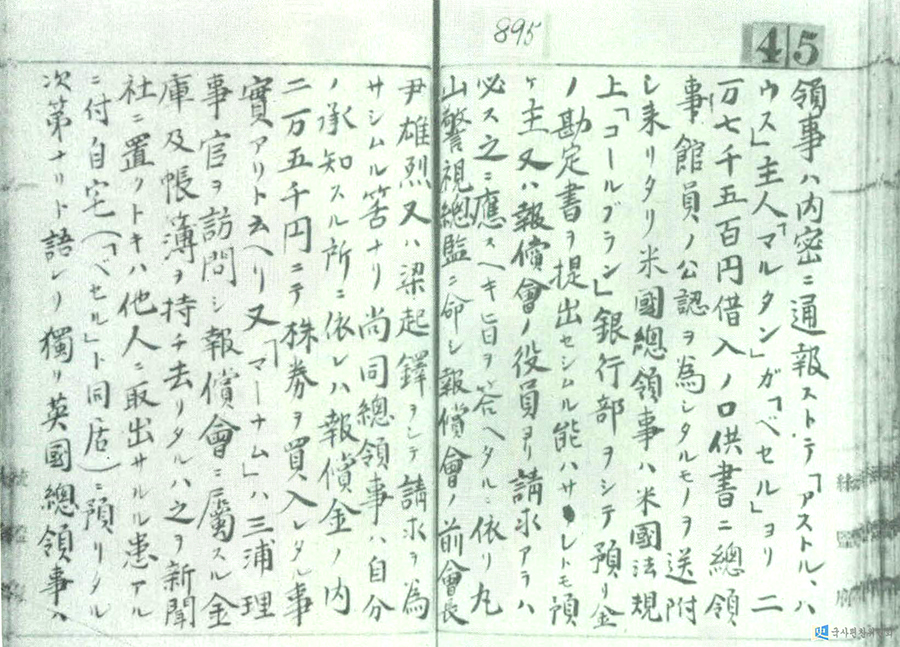 895
45
領事ハ内密ニ通報ストテ「アストル、ハ
ウス」主人「マルタン」ガ「ベセル」ヨリ二
万七千五百円借入ノ口供書ニ總領
事館員ノ公認ヲ為シタルモノヲ送附
シ来リタリ米國總領事ハ米國法規
上「コールブラン」銀行部ヲシテ預リ金
ノ勘定書ヲ提出セシムル能ハサレトモ預
ケ主又ハ報償會ノ役員ヨリ請求アラハ
必ス之ニ應スヘキ旨ヲ答ヘタルニ依リ丸
山警視總監ニ命シ報償會ノ前會長
尹雄烈又ハ梁起鐸ヲシテ請求ヲ為
サシムル筈ナリ尚同總領事ハ自分
ノ承知スル所ニ依レハ報償金ノ内
二万五千円ニテ株券ヲ買入レタル事
實アリト云ヘリ又「マーナム」ハ三浦理
事官ヲ訪問シ報償會ニ屬スル金
庫及帳簿ヲ持チ去リタルハ之ヲ新聞
社ニ置クトキハ他人ニ取出サルル患アル
ニ付自宅(「ベセル」ト同居)ニ預リタル
次第ナリト語レリ獨リ英國總領事ハ
국사편찬위원회